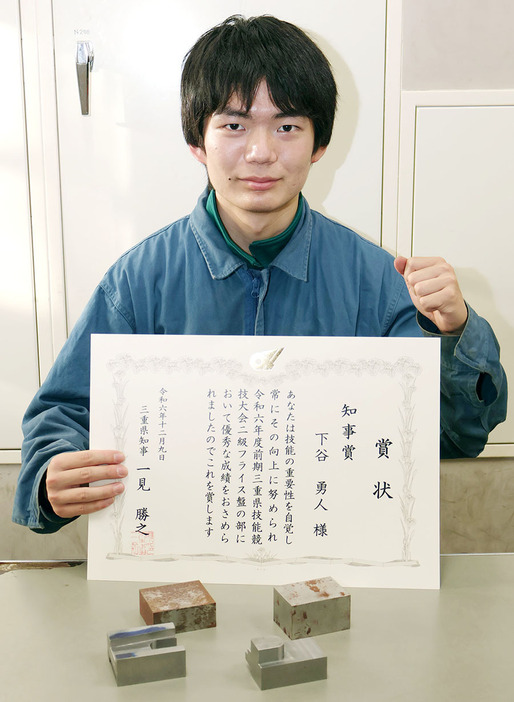 賞状
知事賞
下谷 勇人 様
あなたは技能の重要性を自覚し
常にその向上に努められ
令和六年度前期三重県技能競
技大会二級フライス盤の部に
おいて優秀な成績をおさめら
れましたのでこれを賞します
令和六年十二月九日
三重県知事 一見 勝之